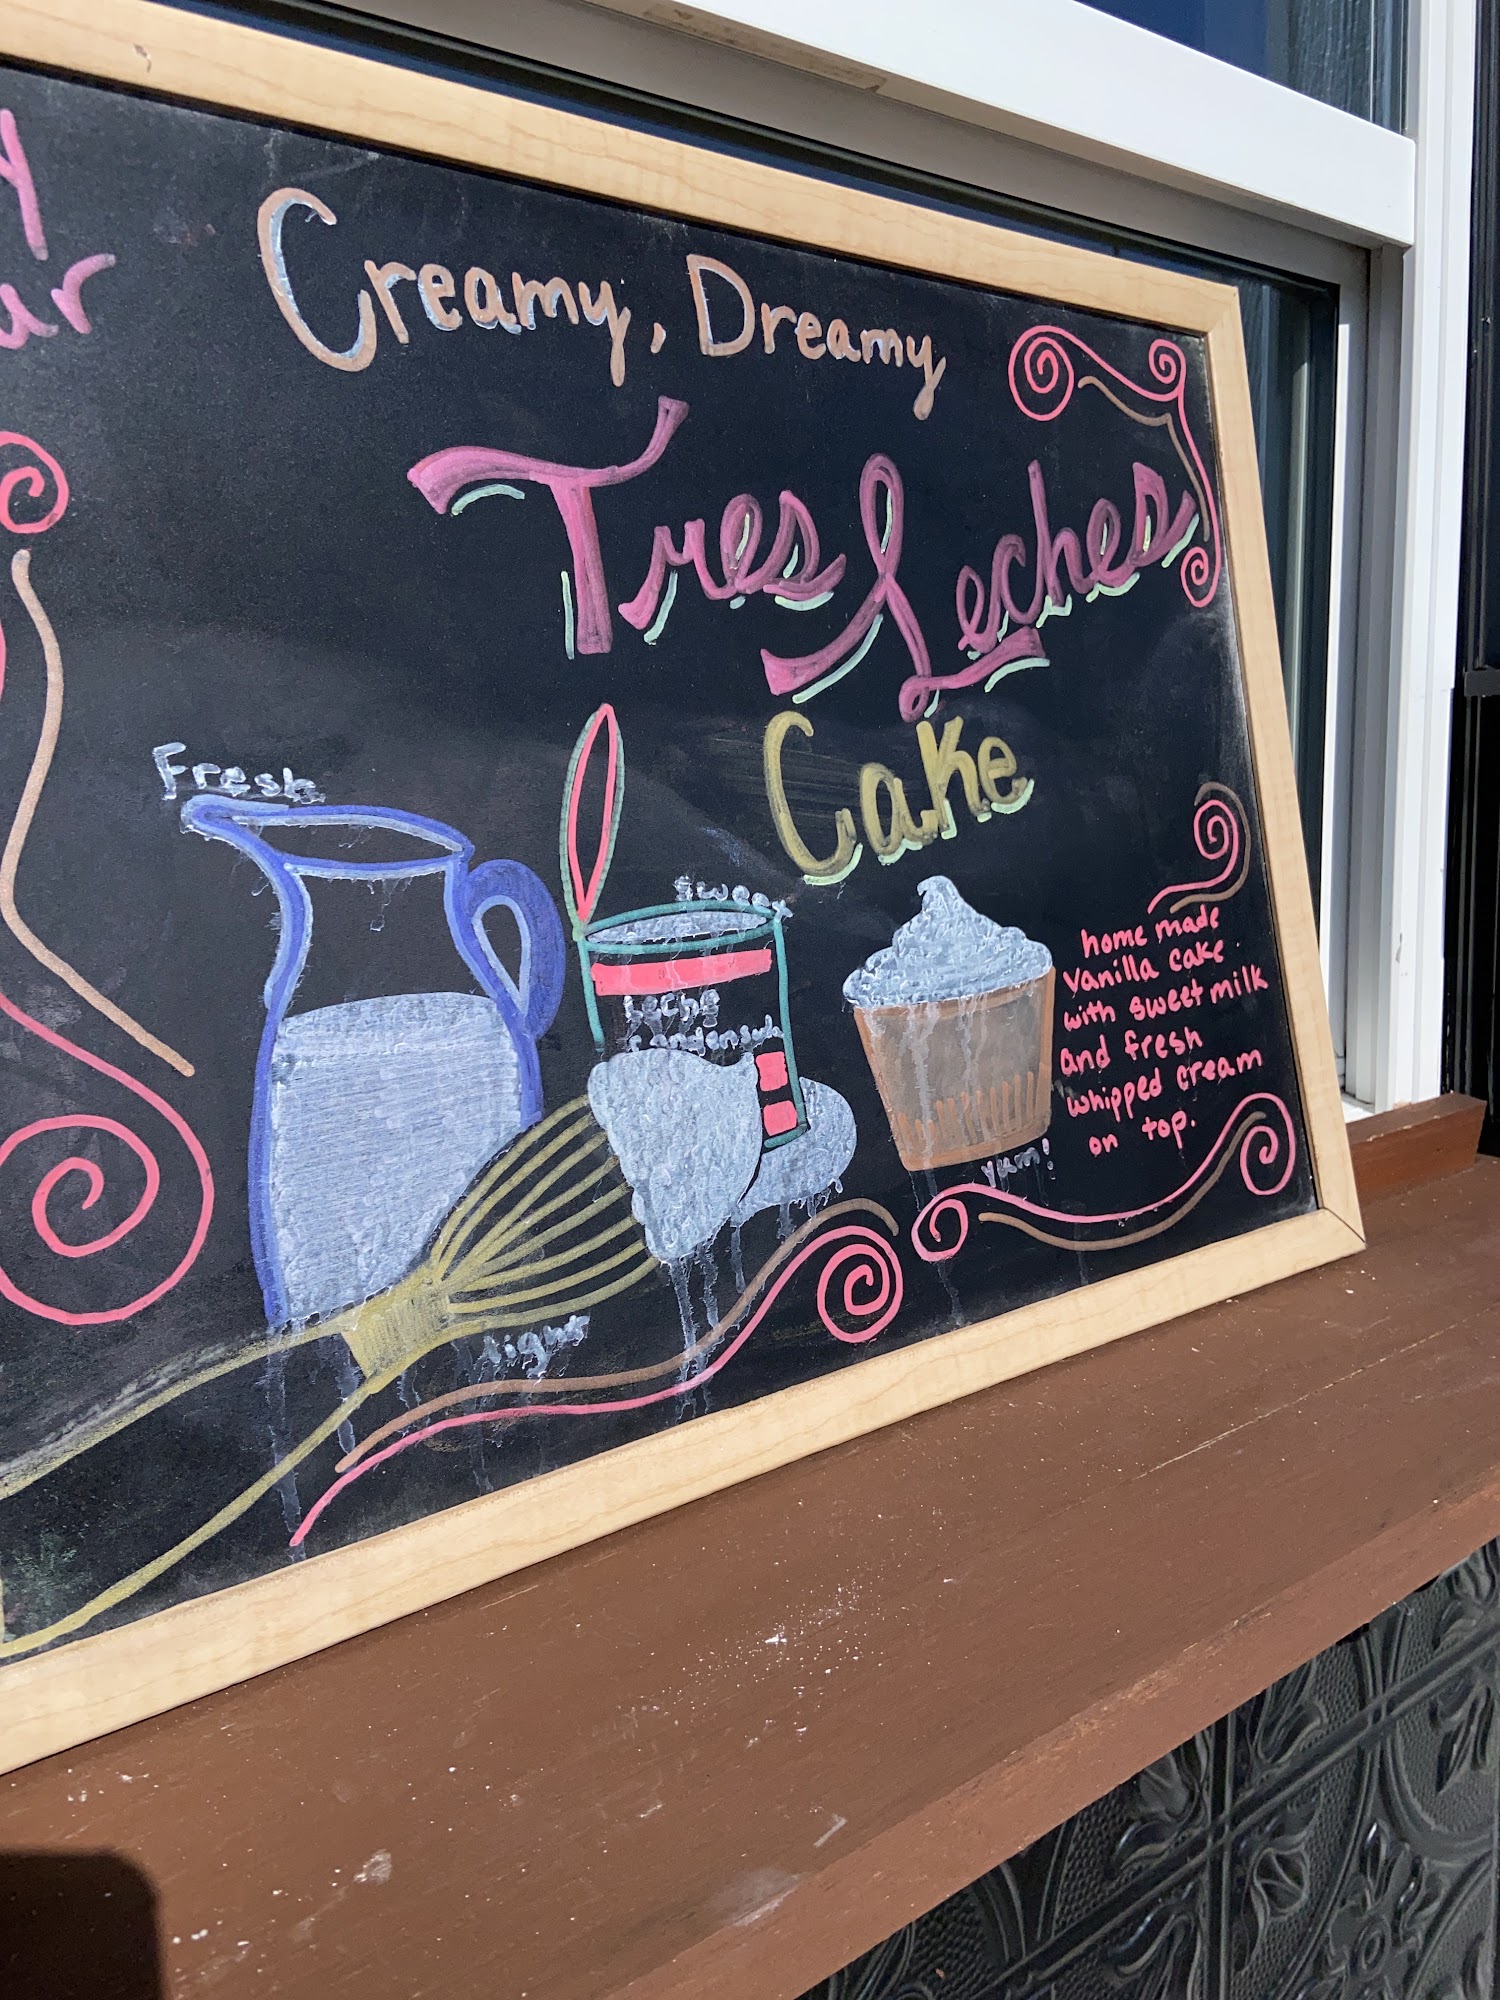 Creamy, Dreamy
Tres Leches
Cake
Fresh
Sweet
Leche
light
home made
vanilla cake
with sweet milk
and fresh
whipped cream
on top.
yum!